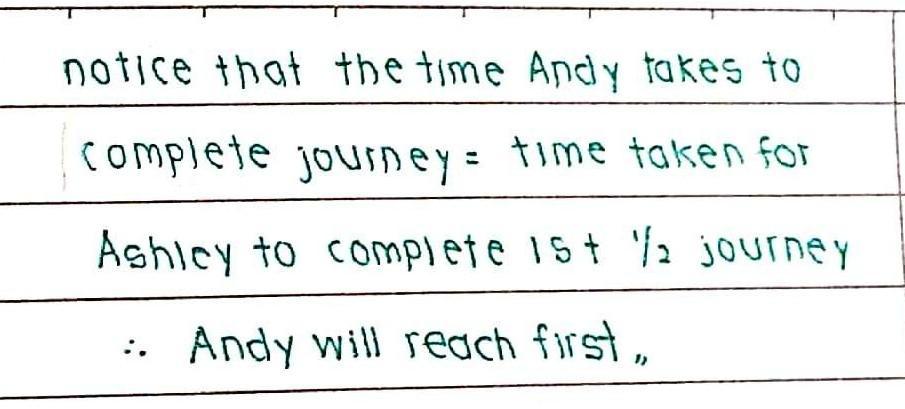 notice that the time Andy takes to
complete journey = time taken for
Ashley to complete 1st 1/2 journey
∴ Andy will reach first „